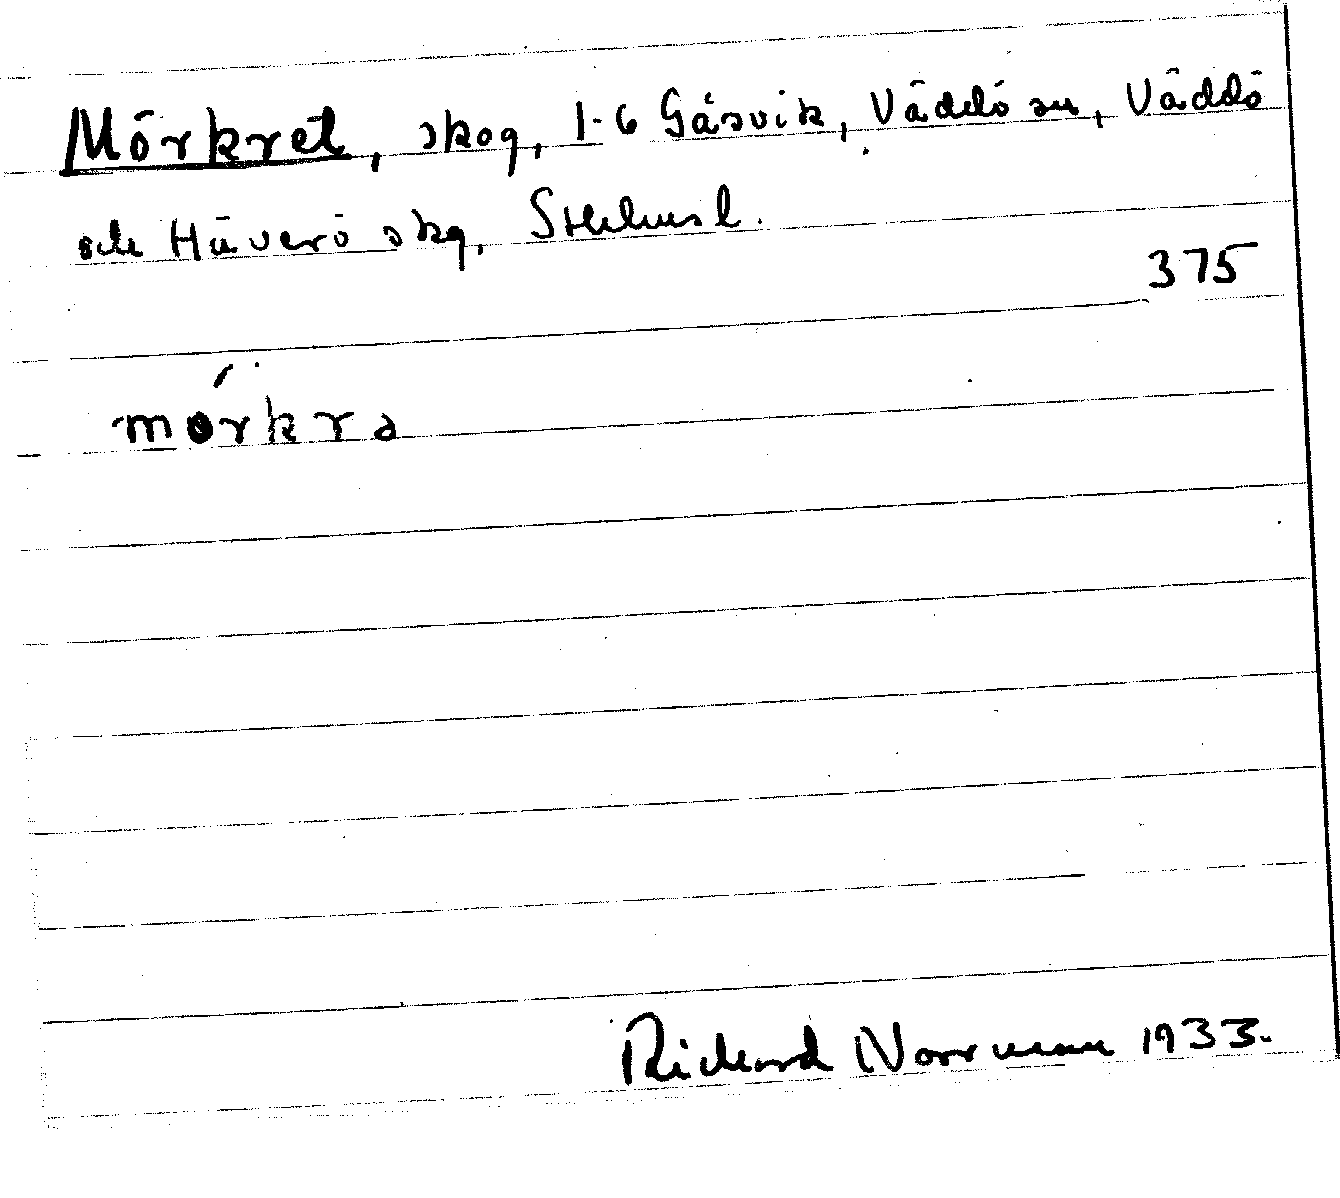 Mörkret, skog, 1-6 Gåsvik, Väddö sn, Väddö
och Häverö skg, Sthlms l.
375
mørkrə
Richard Norrman 1933.